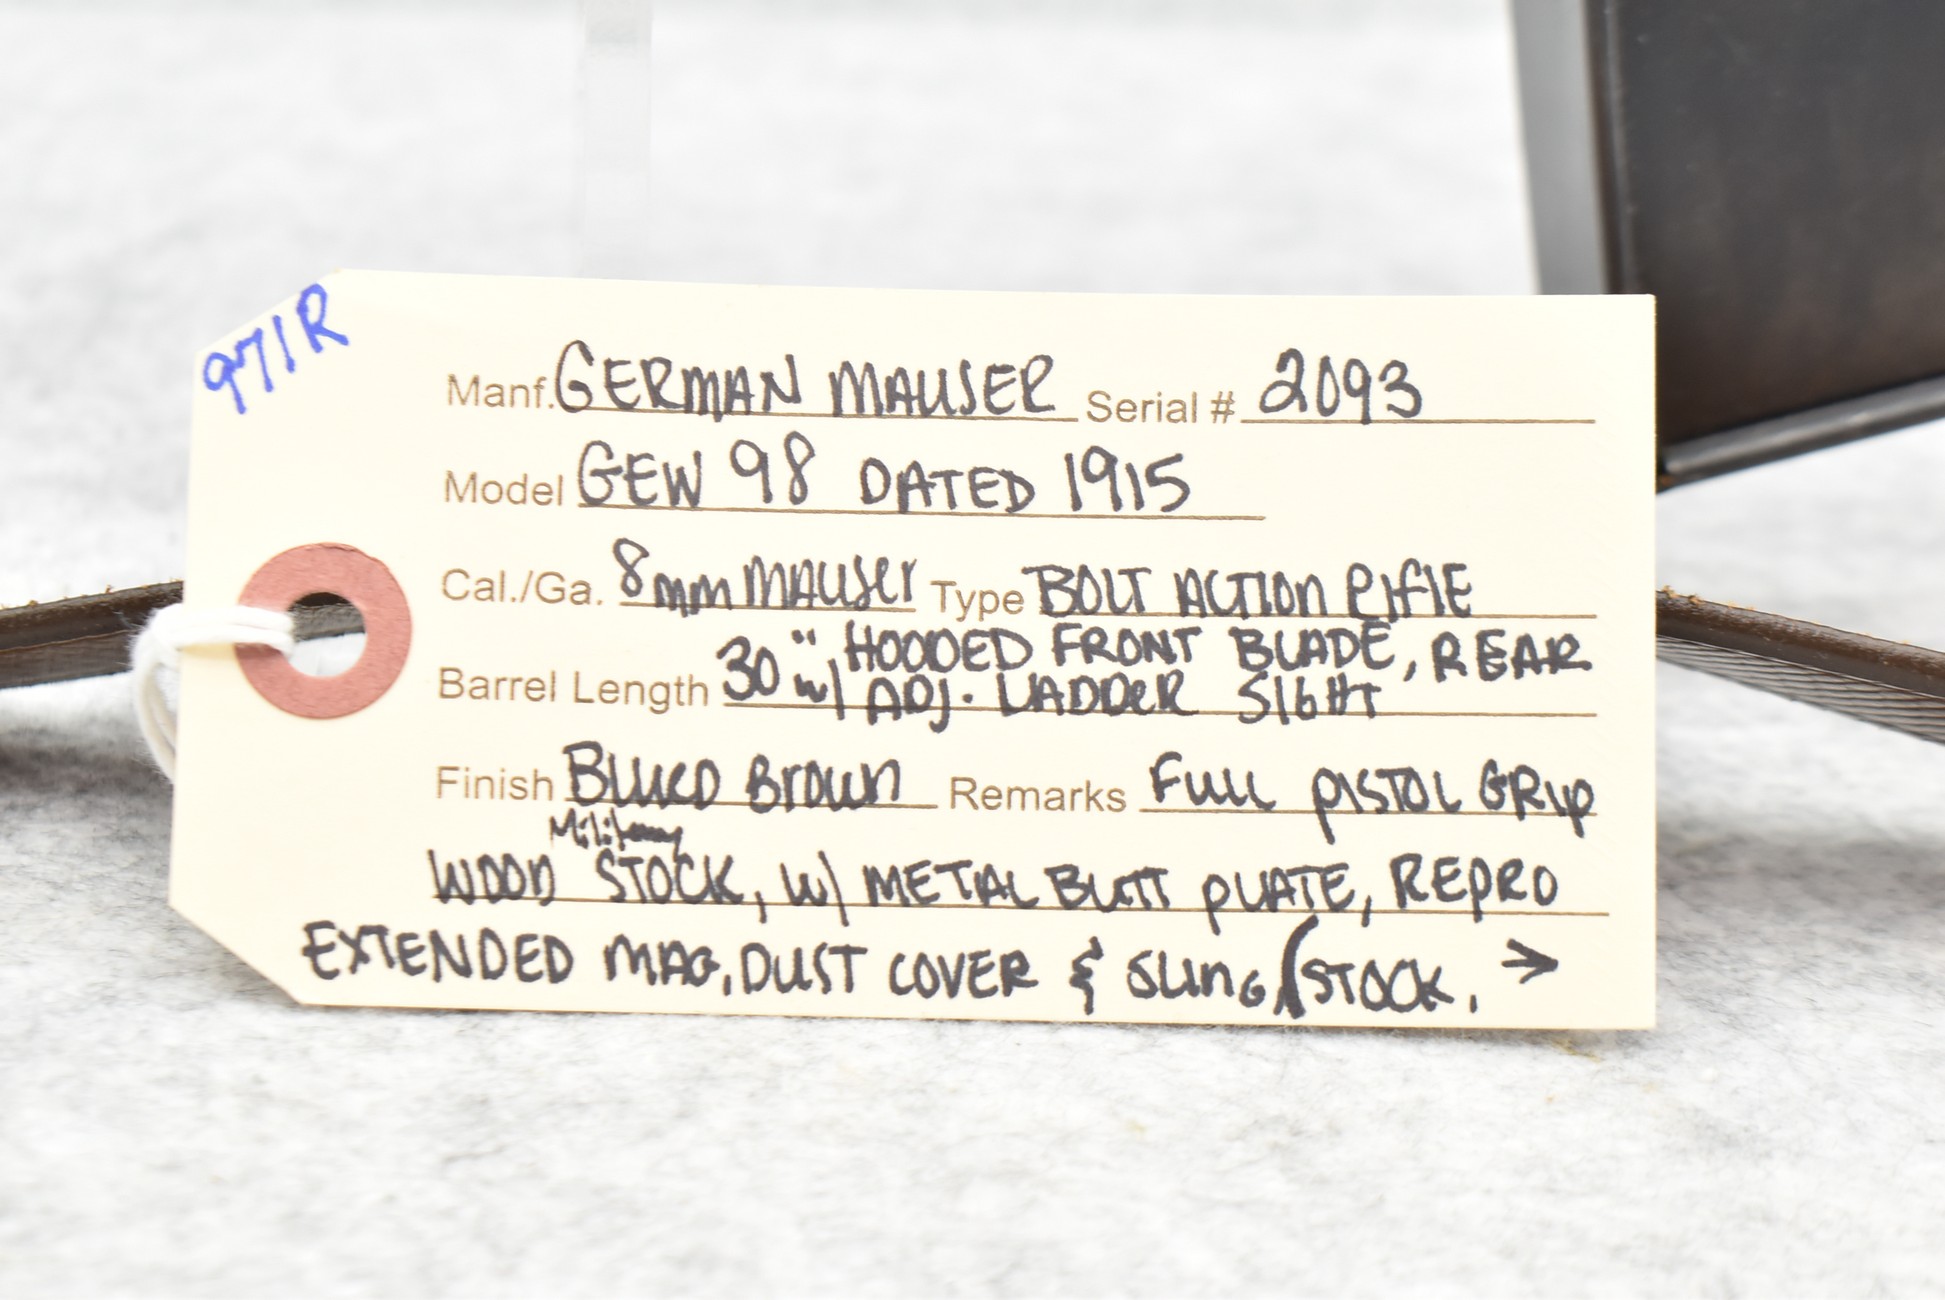 971R
Manf. GERMAN MAUSER Serial # 2093
Model GEW 98 DATED 1915
Cal./Ga. 8mm MAUSER Type BOLT ACTION RIFIE
Barrel Length 30", HOODED FRONT BLADE, REAR
w/ ADJ. LADDER SIGHT
Finish BLUED BROWN Remarks FULL PISTOL GRIP
Military
WOOD STOCK, W/ METAL BUTT PLATE, REPRO
EXTENDED MAG, DUST COVER & SLING/STOCK. →